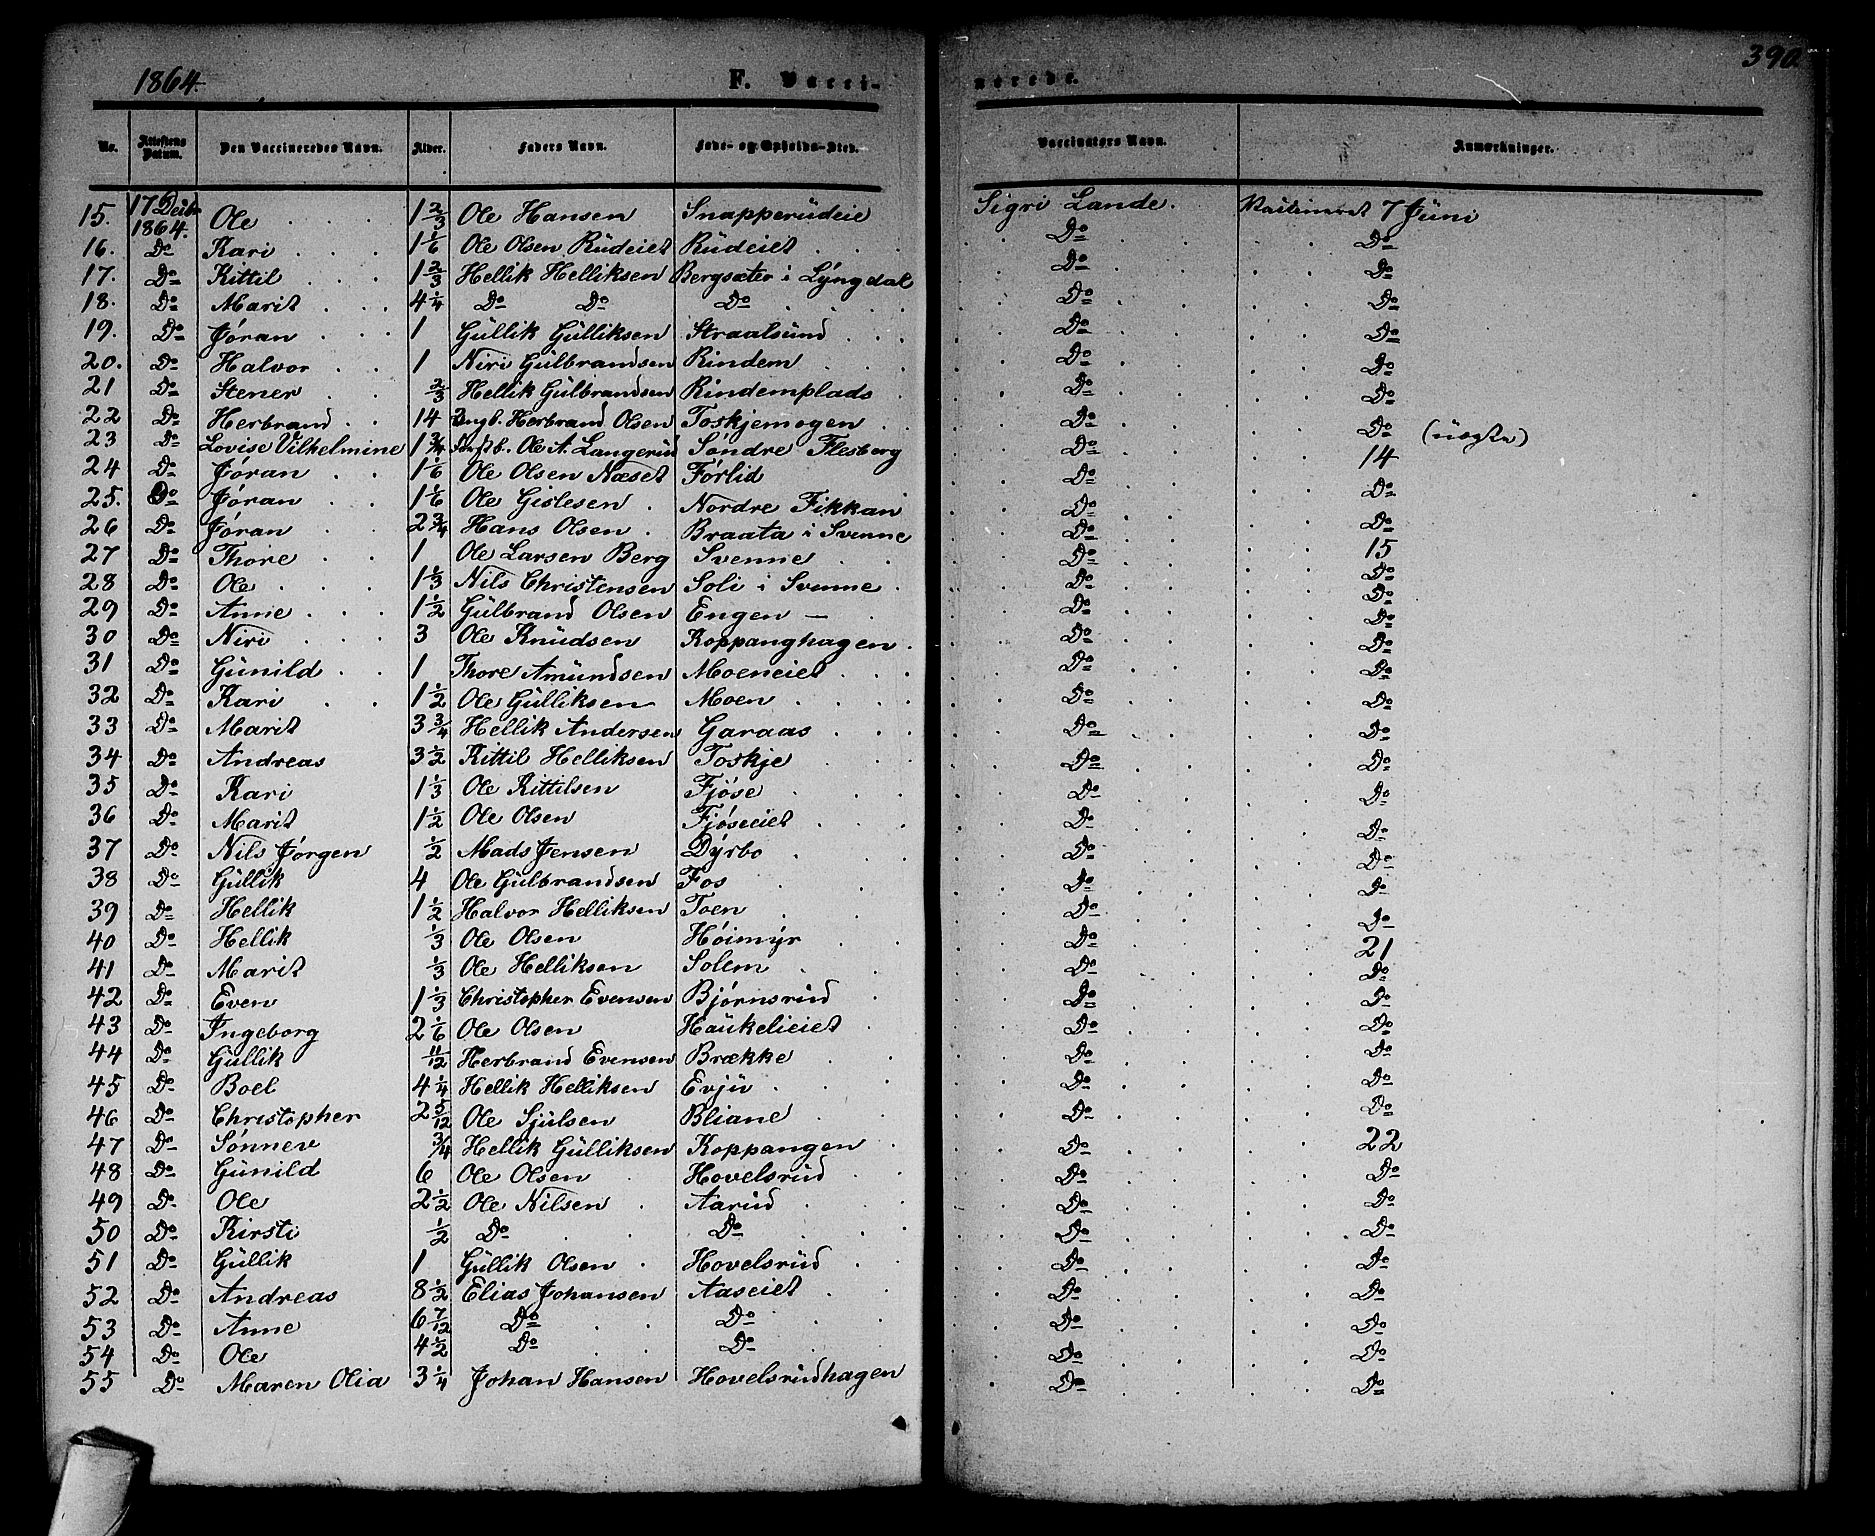 1864. F. Vacci- nerede. 390
No. Attestens Datum. Den Vaccineredes Navn. Alder. Faders Navn. Føde- og Opholds-Sted. Vaccinators Navn. Anmærkninger.
15. 17 Decb. 1864. Ole 1 2/3 Ole Hansen Snapperüdeie Sigri Lande. Vaccineret 7 Jüni
16. Do Kari 1 1/6 Ole Olsen Rüdeiet Rüdeiet Do Do
17. Do Kittil 1 2/3 Hellik Helliksen Bergsæter i Lÿngdal Do Do
18. Do Marit 4 1/4 Do Do Do Do Do
19. Do Jøran 1 Güllik Gülliksen Straalsünd Do Do
20. Do Halvor 1 Niri Gülbrandsen Rindem Do Do
21 Do Stener 2/3 Hellik Gülbrandsen Rindemplads Do Do
22 Do Herbrand 14 Ungk. Herbrand Olsen Toskjemogen Do Do (üægte)
23 Do Lovise Vilhelmine 1 3/4 Ole A. Langerüd Søndre Flesberg Do 14
24 Do Jøran 1 1/6 Ole Olsen Næset Førlid Do Do
25. Do Jøran 1 1/6 Ole Gislesen Nordre Fikkan Do
26 Do Jøran 2 3/4 Hans Olsen Braata i Svenne Do Do
27 Do Thore 1 Ole Larsen Berg Svenne Do 15
28 Do Ole 1 1/3 Nils Christensen Soli i Svenne Do Do
29 Do Anne 1 1/2 Gülbrand Olsen Engen — Do Do
30 Do Niri 3 Ole Knüdsen Koppanghagen Do Do
31 Do Günild 1 Thore Amündsen Moeneiet Do Do
32 Do Kari 1 1/2 Ole Gülliksen Moen Do Do
33 Do Marit 3 3/4 Hellik Andersen Garaas Do Do
34 Do Andreas 3 1/2 Kittil Helliksen Toskje Do Do
35 Do Kari 1 1/3 Ole Kittilsen Fjøse Do Do
36 Do Marit 1 1/2 Ole Olsen Fjøseeiet Do Do
37 Do Nils Jørgen 1/2 Mads Jensen Dÿrbo Do Do
38 Do Güllik 4 Ole Gülbrandsen Fos Do Do
39 Do Hellik 1 1/2 Halvor Helliksen Toen Do Do
40 Do Hellik 1/3 Ole Olsen Høimÿr Do 21
41 Do Marit 1/3 Ole Helliksen Solem Do Do
42 Do Even 1 1/3 Christopher Evensen Bjørnsrüd Do Do
43 Do Ingeborg 2 1/6 Ole Olsen Haükelieiet Do Do
44 Do Güllik 11/12 Herbrand Evensen Brække Do Do
45 Do Boel 4 1/4 Hellik Helliksen Evjü Do Do
46 Do Christopher 2 5/12 Ole Sjülsen Bliane Do Do
47 Do Sønnev 3/4 Hellik Gülliksen Koppangen Do 22
48 Do Günild 6 Ole Olsen Hovelsrüd Do Do
49 Do Ole 2 1/2 Ole Nilsen Aarüd Do Do
50 Do Kirsti 1/2 Do Do Do Do
51 Do Güllik 1 Güllik Olsen Hovelsrüd Do Do
52 Do Andreas 8 1/2 Elias Johansen Aaseiet Do Do
53 Do Anne 6 7/12 Do Do Do Do
54 Do Ole 4 1/2 Do Do Do Do
55 Do Maren Olia 3 1/4 Johan Hansen Hovelsrüdhagen Do Do